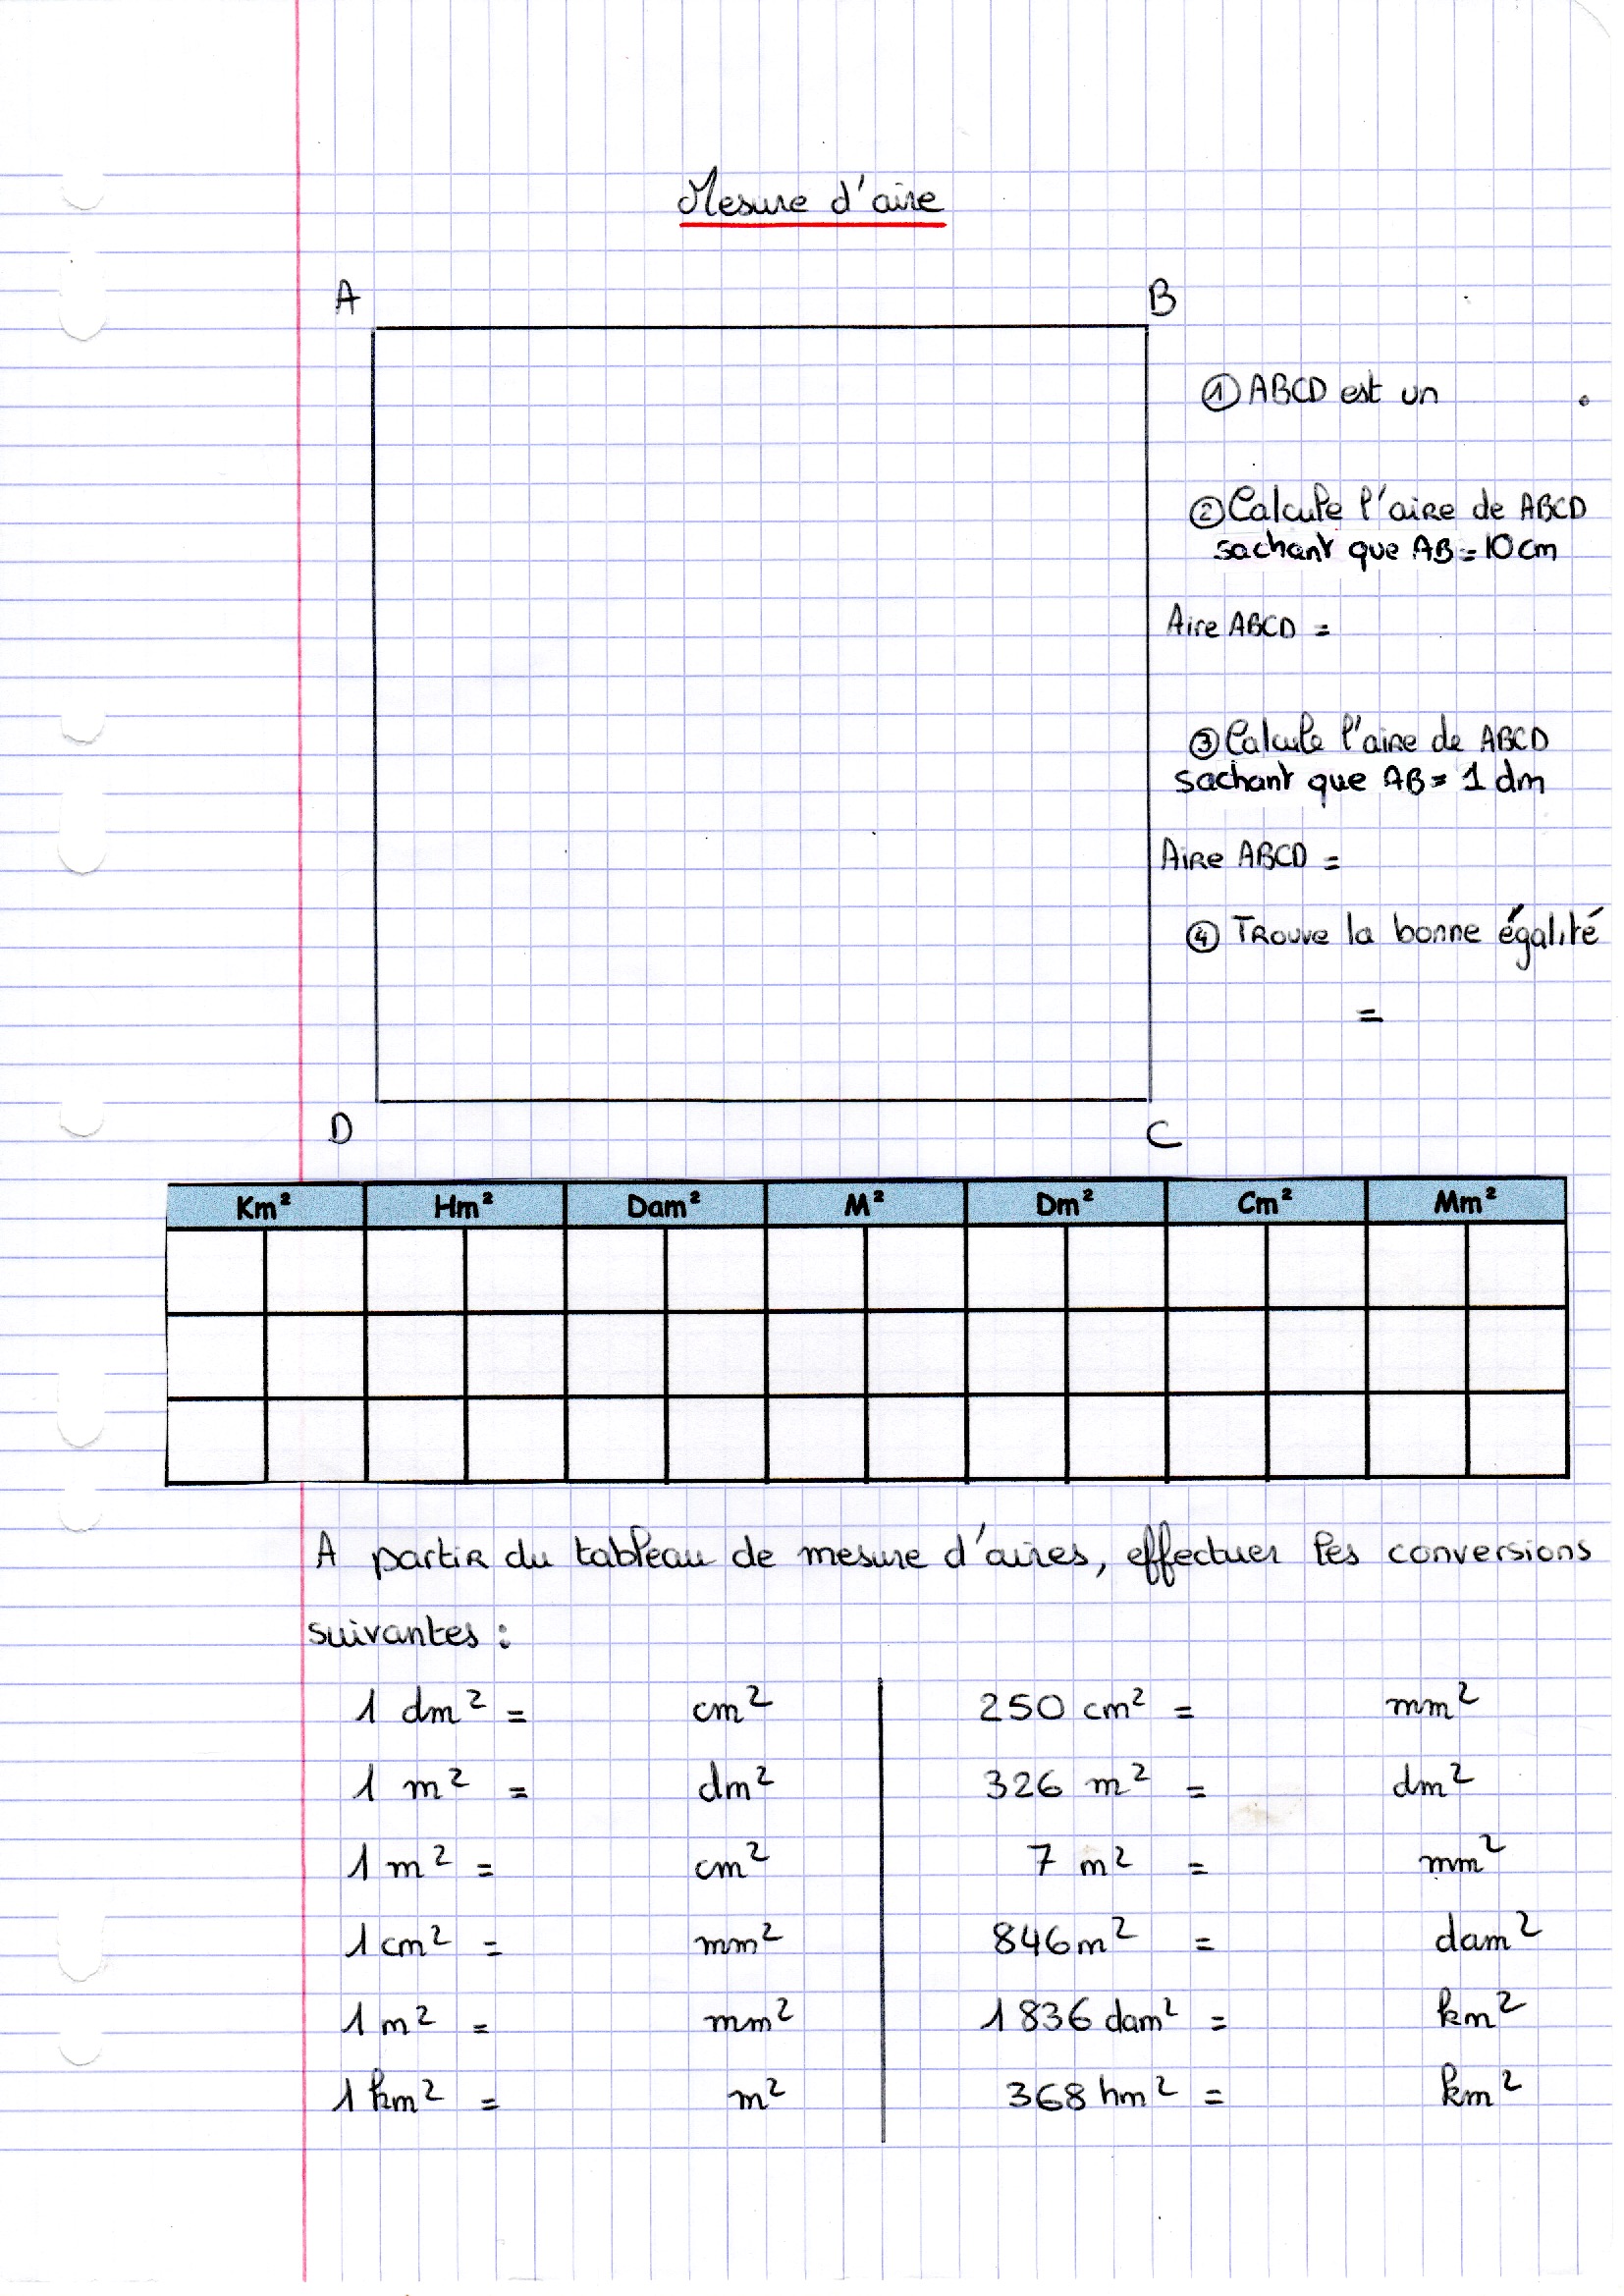 Mesure d'aire
A
B
① ABCD est un .
② Calcule l'aire de ABCD
sachant que AB = 10 cm
Aire ABCD =
③ Calcule l'aire de ABCD
sachant que AB = 1 dm
Aire ABCD =
④ Trouve la bonne égalité
=
D
C
Km² Hm² Dam² M² Dm² Cm² Mm²
A partir du tableau de mesure d'aires, effectuer les conversions
suivantes :
1 dm² = cm² 250 cm² = mm²
1 m² = dm² 326 m² = dm²
1 m² = cm² 7 m² = mm²
1 cm² = mm² 846 m² = dam²
1 m² = mm² 1836 dam² = km²
1 km² = m² 368 hm² = km²